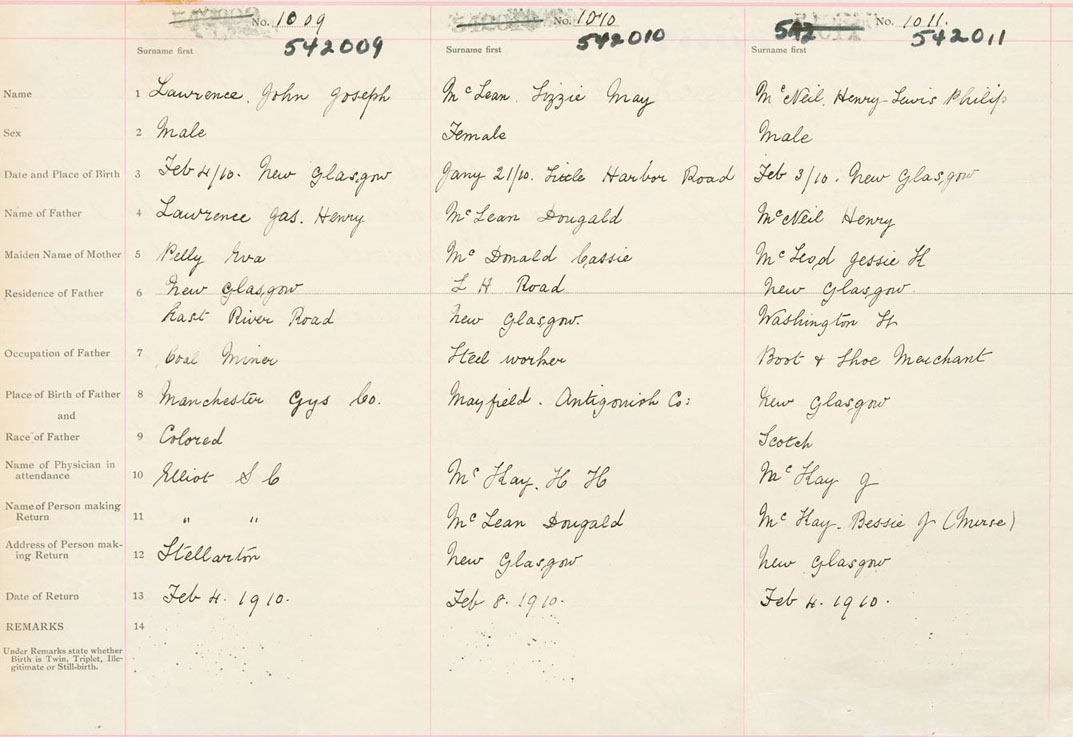 No. 1009 No. 1010 No. 1011.
542009 542010 542011
Surname first Surname first Surname first
Name 1 Lawrence. John Joseph McLean. Lizzie May McNeil. Henry Lewis Philip
Sex 2 Male Female Male
Date and Place of Birth 3 Feb 4/10. New Glasgow Jany 21/10. Little Harbor Road Feb 3/10. New Glasgow
Name of Father 4 Lawrence Jas. Henry McLean Dougald McNeil Henry
Maiden Name of Mother 5 Pelly Eva McDonald Cassie McLeod Jessie H
Residence of Father 6 New Glasgow L H Road New Glasgow.
East River Road New Glasgow. Washington St
Occupation of Father 7 Coal Miner Steel worker Boot & Shoe Merchant
Place of Birth of Father 8 Manchester Gys Co. Mayfield. Antigonish Co: New Glasgow
and
Race of Father 9 Colored Scotch
Name of Physician in
attendance 10 Elliot S C McKay. H H McKay J
Name of Person making
Return 11 " " McLean Dougald McKay. Bessie J (Nurse)
Address of Person mak-
ing Return 12 Stellarton New Glasgow New Glasgow
Date of Return 13 Feb 4. 1910. Feb 8. 1910. Feb 4. 1910.
REMARKS 14
Under Remarks state whether
Birth is Twin, Triplet, Ille-
gitimate or Still-birth.